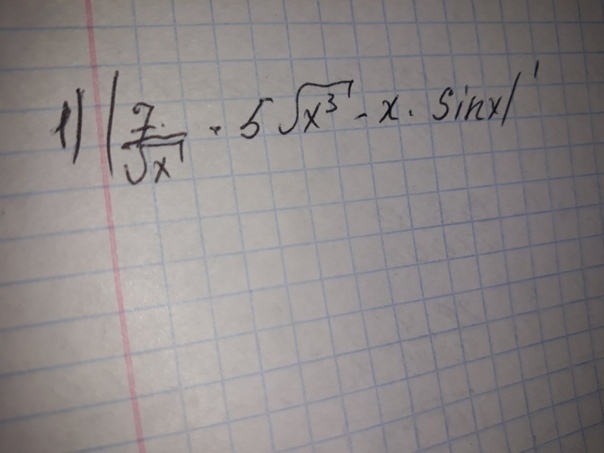 1) (7/√x · 5√x³ - x · sinx)'